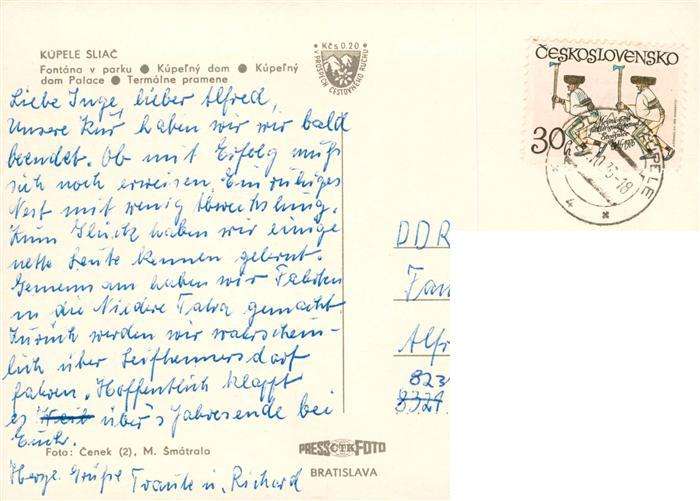 KÚPELE SLIAČ
Fontána v parku ● Kúpeľný dom ● Kúpeľný
dom Palace ● Termálne pramene
Kčs 0,20
V PROSPECH CESTOVNÉHO RUCHU
ČESKOSLOVENSKO
30
Liebe Inge, lieber Alfred,
Unsere Kur haben wir wir bald
beendet. Ob mit Erfolg muß
sich noch erweisen. Ein ruhiges
Nest mit wenig Abwechslung.
Zum Glück haben wir einige
nette Leute kennen gelernt.
Gemeinsam haben wir Fahrten
in die Niedere Tatra gemacht
Zurück werden wir warschein-
lich über Seifhennersdorf
fahren. Hoffentlich klappt
es über's Jahresende bei
Euch.
Herzl. Grüße Traute u. Richard
DDR
Fam
Alfr
823
8321
Foto: Čenek (2), M. Šmátrala
PRESSČTKFOTO
BRATISLAVA